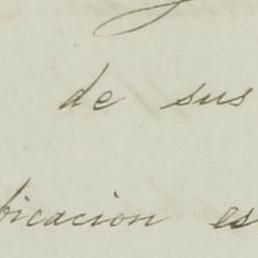 de sus
bicacion es